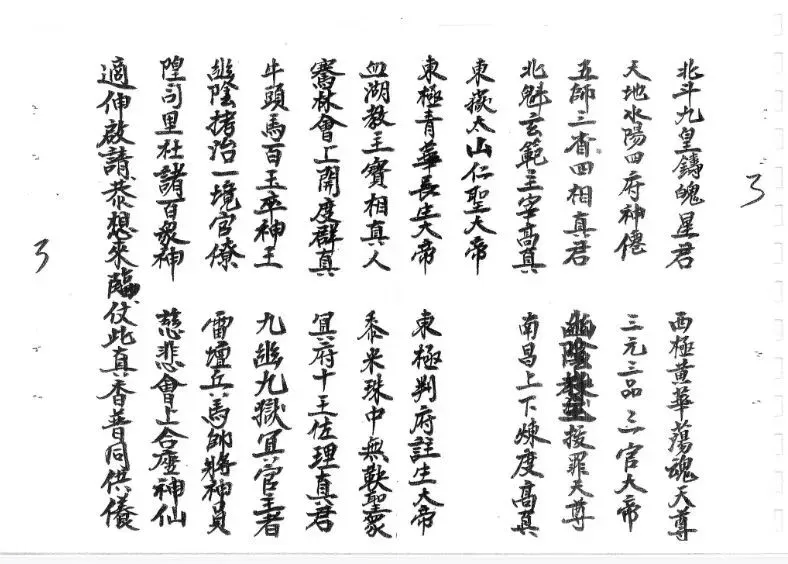 3
北斗九皇鑄魄星君 西極黄華蕩魂天尊
天地水陽四府神僊 三元三品三官大帝
五師三省四相真君 拔罪天尊
北魁玄範主宰高真 南昌上下煉度高真
東嶽太山仁聖大帝
東極青華長生大帝 東極判府註生大帝
血湖教主寶相真人 黍米珠中無鞅聖衆
騫林會上開度群真 冥府十王佐理真君
牛頭馬百玉卒神王 九幽九獄冥官主者
幽陰拷治一境官僚 雷壇兵馬師將神員
隍司里社諸百衆神 慈悲會上合座神仙
適伸啟請恭想來臨仗此真香普同供儀
3